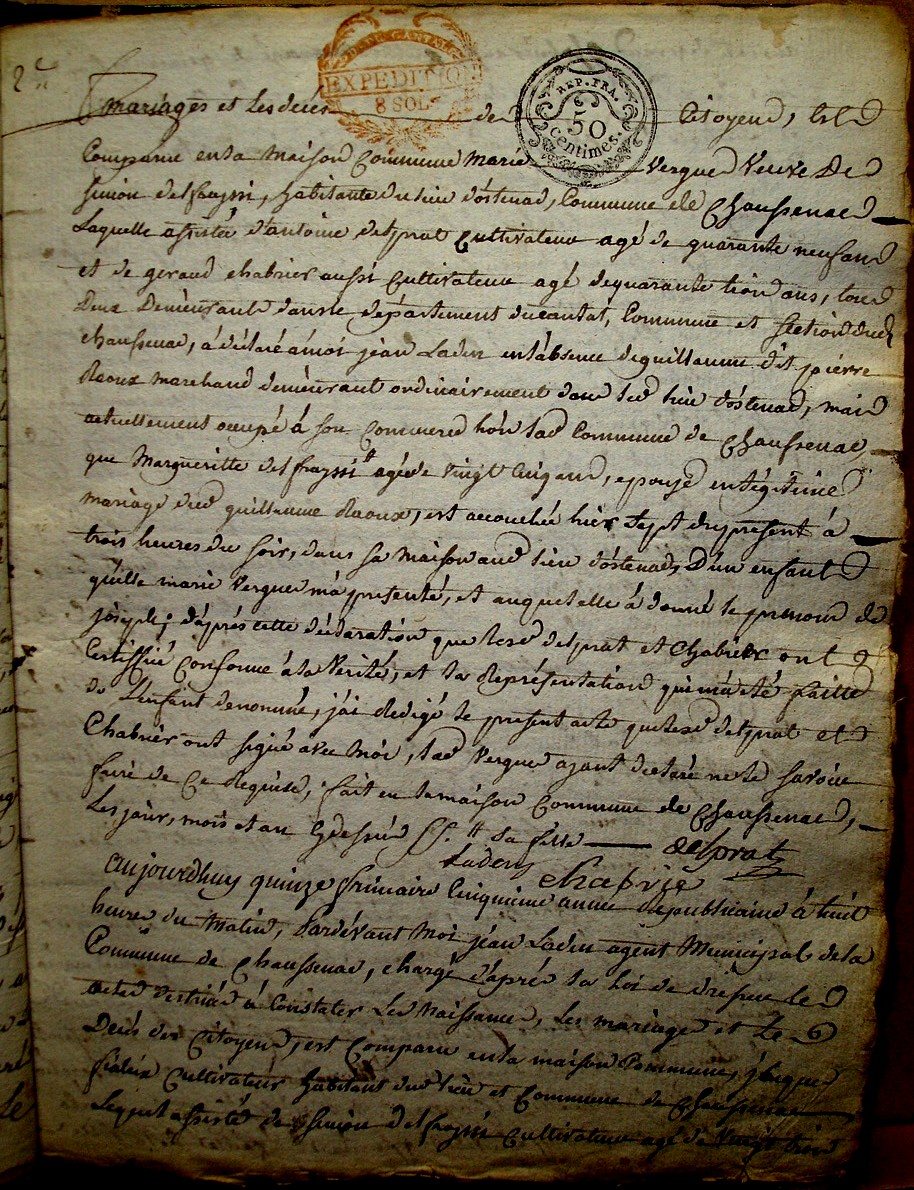 2e
DU CANTAL
EXPEDITION
8 SOLS
REP. FRA.
50
centimes.
mariages et Les deces des Citoyens, est
Comparue en la maison Commune Marie Vergne Veuve De
simon delfraÿssi, habitante du lieu d'ostenac, Commune de Chaussenac
Laquelle assistée d'antoine delprat Cultivateur agé de quarante neuf ans
et de geraud chabrier aussi Cultivateur agé de quarante trois ans, tous
Deux Demeurant dans le département du cantal, Commune et section dud
chaussenac, à déclaré à moi jean Laden en l'absence de guillaume dit pierre
Raoux marchand demeurant ordinairement dans led lieu d'ostenac, mais
actuellement occupé à son Commerce hors lad Commune de Chaussenac,
que Margueritte delfraÿssi agée de vingt Cinq ans, epouse en légitime
mariage dud guillaume Raoux, est accouchée hier sept du présent à
trois heures du soir, dans sa Maison aud lieu d'ostenac, D'un enfant
qu'elle marie Vergne m'a presenté, et auquel elle à donné le prenom de
joseph; d'après cette déclaration que lesd delprat et Chabrier ont
Certiffié Conforme à la Vérité, et la Représentation qui m'a été faitte
de L'enfant denommé, j'ai Redigé le present acte que lesd delprat et
Chabrier ont signé avec Moi, lad Vergne ayant declaré ne le savoir
faire de Ce Requise, fait en la maison Commune de Chaussenac,
Les jour, mois et an Cy dessus sa fille delprat
Laden chabrie
aujourdhuy quinze frimaire Cinquieme année Republicaine à huit
heures du Matin, Pardevant Moi jean Laden agent Municipal de la
Commune de Chaussenac, chargé d'après la Loi de dresser les
actes destinés à Constater Les Naissances, Les mariages et Les
Décès des Citoyens, est Comparu en la maison Commune, jacques
Cultivateur habitant dud lieu et Commune de Chaussenac
Lequel assisté de simon delfraÿssi Cultivateur agé de Vingt trois